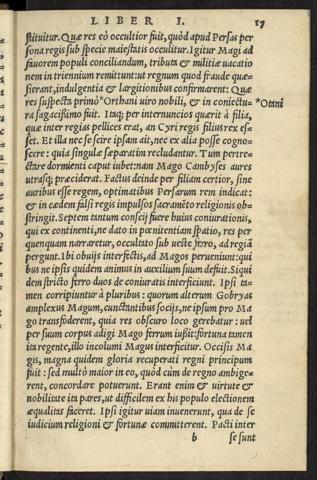 LIBER I. 17
stituitur. Quæ res eò occultior fuit, quòd apud Persas per
sona regis sub specie maiestatis occulitur. Igitur Magi ad
fauorem populi conciliandum, tributa & militiæ uacatio
nem in triennium remittunt: ut regnum quod fraude quæ-
sierant, indulgentia & largitionibus confirmarent: Quæ
res suspecta primò *Orthani uiro nobili, & in coniectu- *Ostani
ra sagacissimo fuit. Itaq; per internuncios quærit à filia,
quæ inter regias pellices erat, an Cyri regis filius rex es-
set. Et illa nec se scire ipsam ait, nec ex alia posse cogno-
scere: quia singulæ separatim recludantur. Tum pertre-
ctare dormienti caput iubet: nam Mago Cambyses aures
utrasq; præciderat. Factus deinde per filiam certior, sine
auribus esse regem, optimatibus Persarum rem indicat:
& in cædem falsi regis impulsos sacramēto religionis ob-
stringit. Septem tantum conscij fuere huius coniurationis,
qui ex continenti, ne dato in pœnitentiam spatio, res per
quenquam narraretur, occultato sub ueste ferro, ad regiā
pergunt. Ibi obuijs interfectis, ad Magos perueniunt: qui
bus ne ipsis quidem animus in auxilium suum defuit. Siqui
dem stricto ferro duos de coniuratis interficiunt. Ipsi ta-
men corripiuntur à pluribus: quorum alterum Gobryas
amplexus Magum, cunctantibus socijs, ne ipsum pro Ma
go transfoderent, quia res obscuro loco gerebatur: uel
per suum corpus adigi Mago ferrum iussit: fortuna tamen
ita regente, illo incolumi Magus interficitur. Occisis Ma
gis, magna quidem gloria recuperati regni principum
fuit: sed multò maior in eo, quòd cùm de regno ambige-
rent, concordare potuerunt. Erant enim & uirtute &
nobilitate ita pares, ut difficilem ex his populo electionem
æqualitas faceret. Ipsi igitur uiam inuenerunt, qua de se
iudicium religioni & fortunæ committerent. Pacti inter
b se sunt